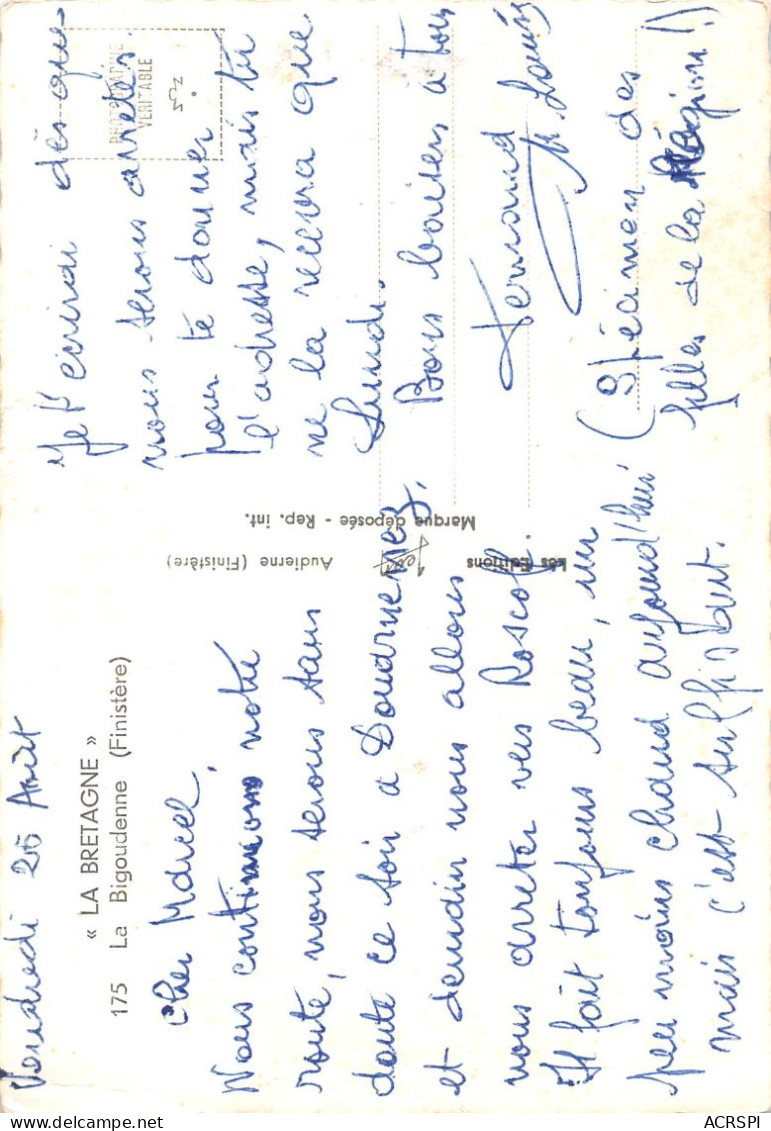 Vendredi 26 Août
« LA BRETAGNE »
175 La Bigoudenne (Finistère)
Cher Marcel,
Nous continuons notre
route, nous serons sans
doute ce soir a Douarnenez,
et demain nous allons
nous arreter vers Roscoff.
Il fait toujours beau, un
peu moins chaud aujourd'hui
mais c'est suffisant.
Audierne (Finistère)
Les Editions
Jean
Marque déposée - Rep. int.
PHOTOGRAPHIE
VERITABLE
Je t'écrirai dès que
nous serons arretés
pour te donner
l'adresse, mais tu
ne la recevra que
Lundi.
Bons baisers à tous
Fernand
(Spécimen des
filles de la Région!)
ACRSPI